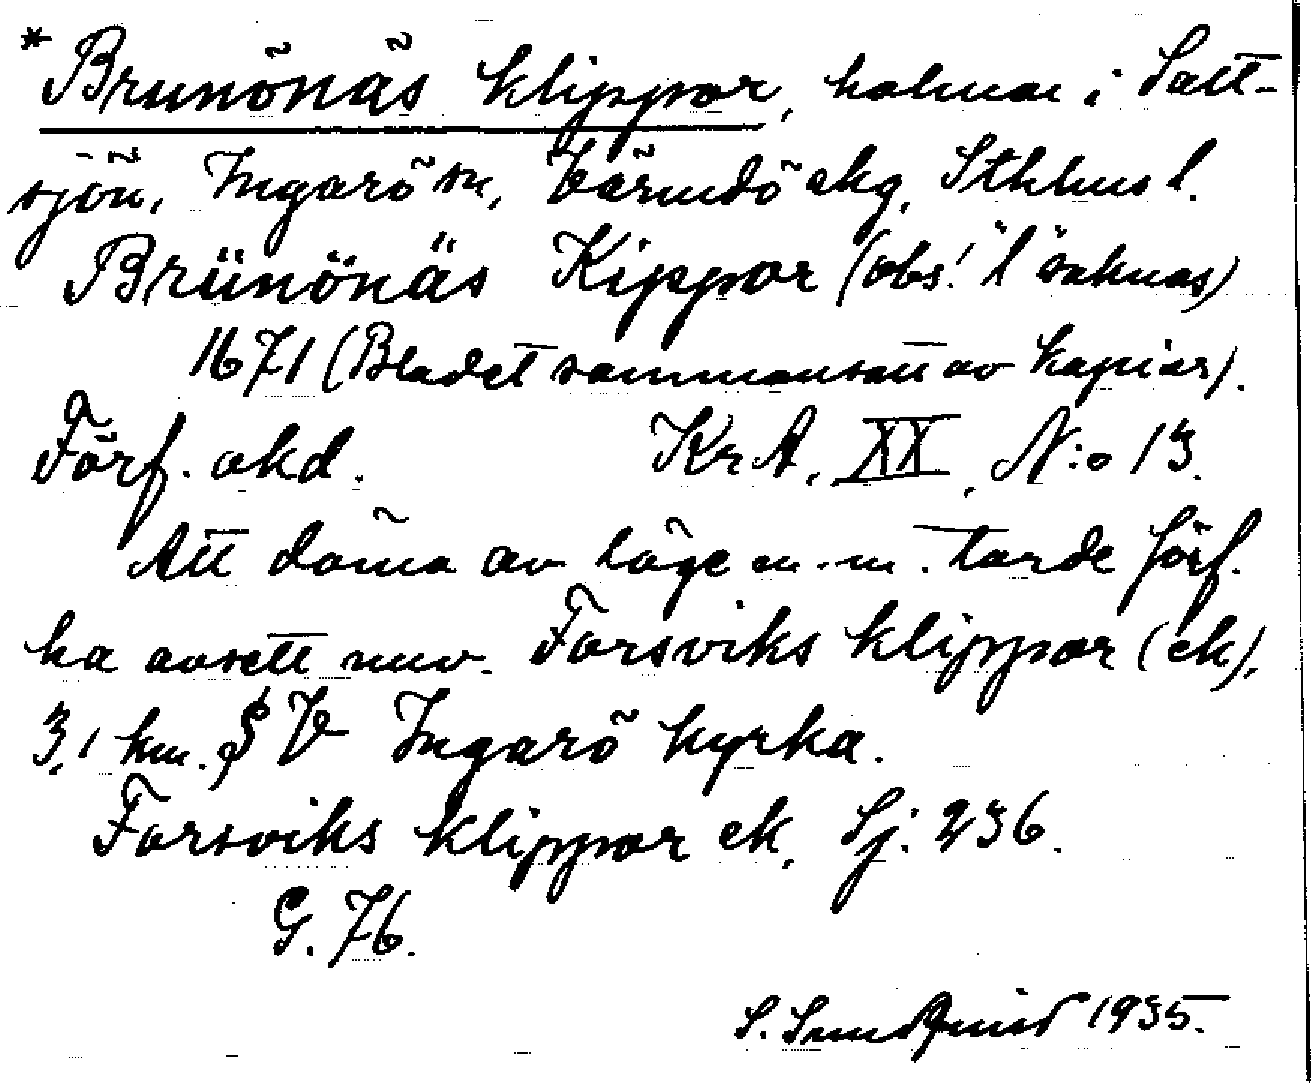 *Brunönäs klippor, holmar i Salt-
sjön, Ingarö sn, Värmdö skg, Sthlms l.
Brünönäs Kippor (obs! "l" saknas)
1671 (Bladet sammansatt av kopior).
Förf. okd. KrA, XX, N:o 13.
Att döma av läge m.m. torde förf.
ha avsett nuv. Forsviks klippor (ek),
3,1 km. S V Ingarö kyrka.
Forsviks klippor ek, Sj. 236.
G. 76.
S. Sundquist 1935.